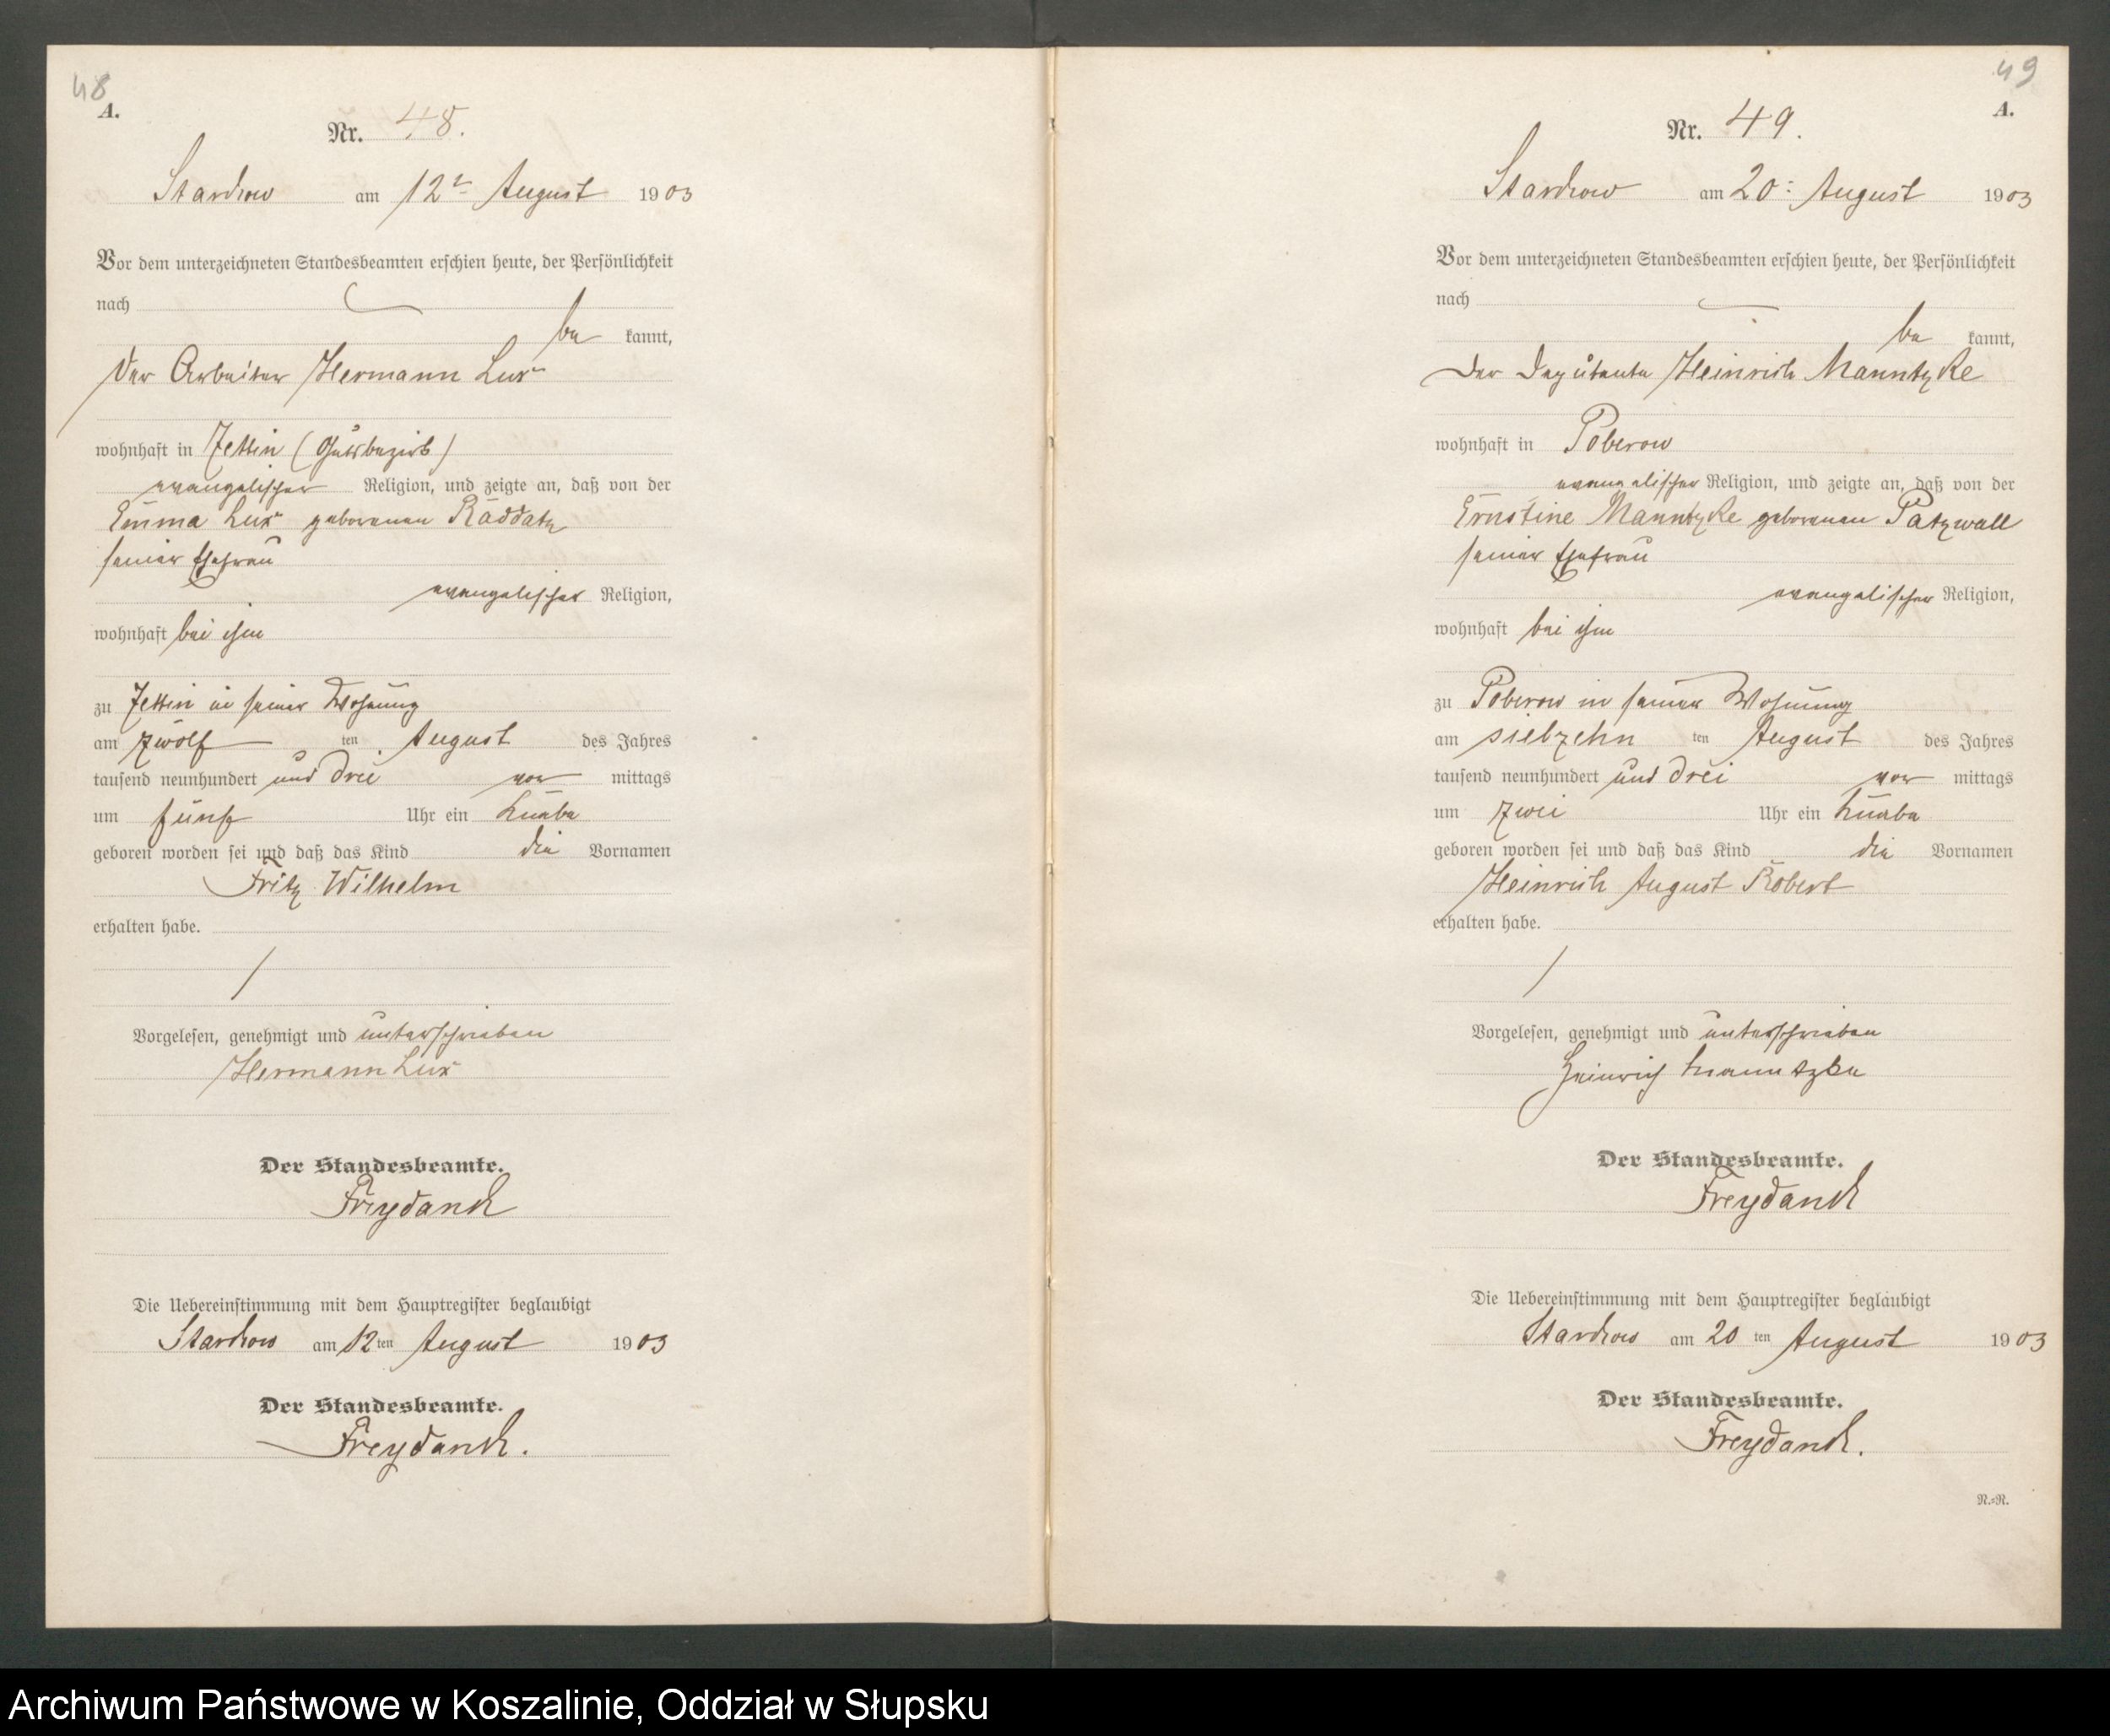 48
A.
Nr. 48.
Starckow am 12t August 1903
Vor dem unterzeichneten Standesbeamten erschien heute, der Persönlichkeit
nach
be kannt,
Der Arbeiter Hermann Lux
wohnhaft in Zettin (Gutsbezirk)
evangelischer Religion, und zeigte an, daß von der
Emma Lux geborenen Raddatz
seiner Ehefrau
evangelischer Religion,
wohnhaft bei ihm
zu Zettin in seiner Wohnung
am zwölf ten August des Jahres
tausend neunhundert und drei vor mittags
um fünf Uhr ein Knabe
geboren worden sei und daß das Kind die Vornamen
Fritz Wilhelm
erhalten habe.
Vorgelesen, genehmigt und unterschrieben
Hermann Lux
Der Standesbeamte.
Freydanck
Die Uebereinstimmung mit dem Hauptregister beglaubigt
Starckow am 12ten August 1903
Der Standesbeamte.
Freydanck.
49
A.
Nr. 49.
Starckow am 20: August 1903
Vor dem unterzeichneten Standesbeamten erschien heute, der Persönlichkeit
nach
be kannt,
Der Deputante Heinrich Manntzke
wohnhaft in Poberow
evangelischer Religion, und zeigte an, daß von der
Ernstine Manntzke geborenen Patzwall
seiner Ehefrau
evangelischer Religion,
wohnhaft bei ihm
zu Poberow in seiner Wohnung
am siebzehn ten August des Jahres
tausend neunhundert und drei vor mittags
um zwei Uhr ein Knabe
geboren worden sei und daß das Kind die Vornamen
Heinrich August Robert
erhalten habe.
Vorgelesen, genehmigt und unterschrieben
Heinrich Manntzke
Der Standesbeamte.
Freydanck
Die Uebereinstimmung mit dem Hauptregister beglaubigt
Starckow am 20 ten August 1903
Der Standesbeamte.
Freydanck.
R.=R.
Archiwum Państwowe w Koszalinie, Oddział w Słupsku